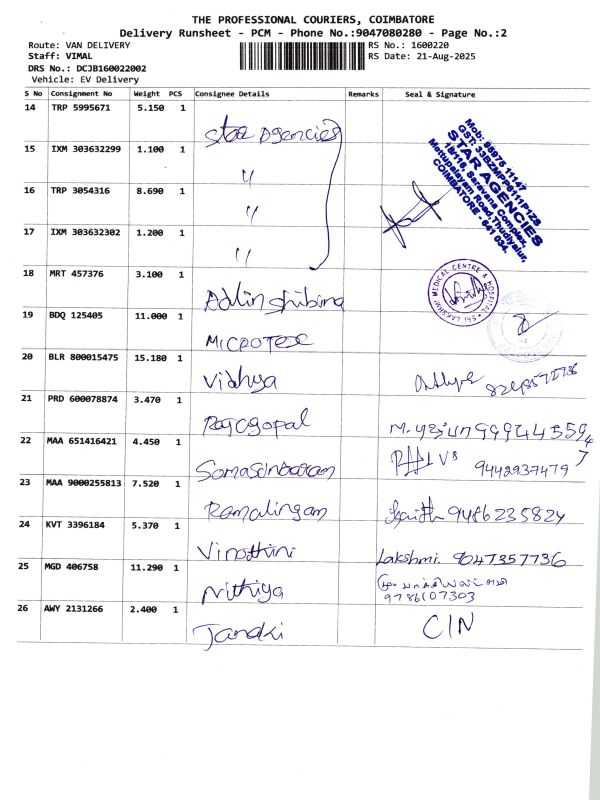 THE PROFESSIONAL COURIERS, COIMBATORE
Delivery Runsheet - PCM - Phone No.:9047080280 - Page No.:2
Route: VAN DELIVERY
RS No.: 1600220
Staff: VIMAL
RS Date: 21-Aug-2025
DRS No.: DCJB160022002
Vehicle: EV Delivery
S No Consignment No Weight PCS Consignee Details Remarks Seal & Signature
14 TRP 5995671 5.150 1
Star Agencies
15 IXM 303632299 1.100 1
"
16 TRP 3054316 8.690 1
"
17 IXM 303632302 1.200 1
"
Mob: 95975 11147
GST: 33BZMPP8111P1ZS
STAR AGENCIES
18/116, Saravana Complex,
Mettupalayam Road, Thudiyalur,
COIMBATORE - 641 034.
18 MRT 457376 3.100 1
Adlin shibina
SRI LAKSHMI MEDICAL CENTRE & HOSPITAL
19 BDQ 125405 11.000 1
MICROTESE
20 BLR 800015475 15.180 1
Vidhya
21 PRD 600078874 3.470 1
Rajagopal
22 MAA 651416421 4.450 1
Somasundaram
9442937479
23 MAA 9000255813 7.520 1
Ramalingam
9486235824
24 KVT 3396184 5.370 1
Vinothini
Lakshmi. 9047357736
25 MGD 406758 11.290 1
Nithiya
9786107303
26 AWY 2131266 2.400 1
Janaki
C/N